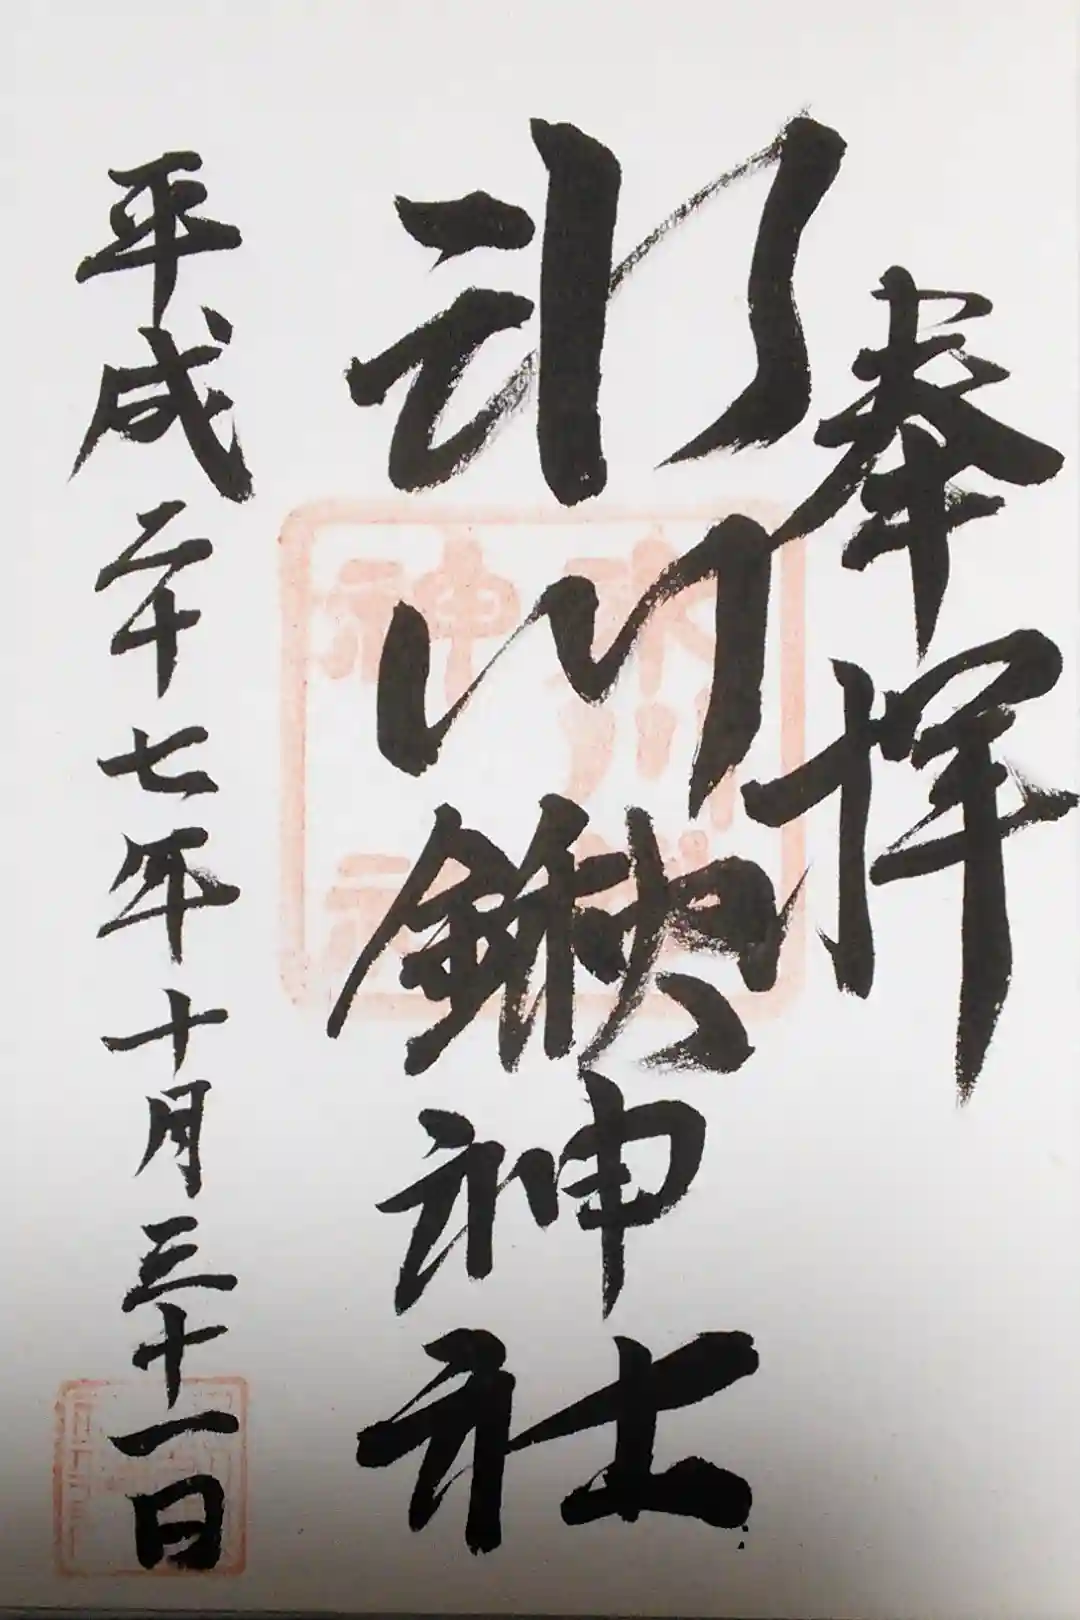 奉拝
氷川鍬神社
平成二十七年十月三十一日
氷川
神社